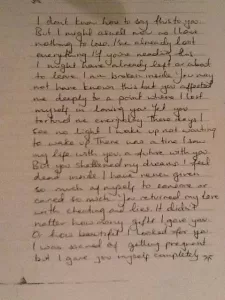 I don't know how to say this to you.
But I might aswell now as I have
nothing to lose. I've already lost
everything. If you're reading this
I might have already left or about
to leave. I am broken inside. You may
not have known this but you affected
me deeply to a point where I lost
myself in loving you. Yet you
tortured me everyday. These days I
see no light I wake up not wanting
to wake up. There was a time I saw
my life with you, a future with you.
But you shattered my dreams. I feel
dead inside. I have never given
so much of myself to someone or
cared so much. You returned my love
with cheating and lies. It didn't
matter how many gifts I gave you.
Or how beautiful I looked for you.
I was scared of getting pregnant
but I gave you myself completely